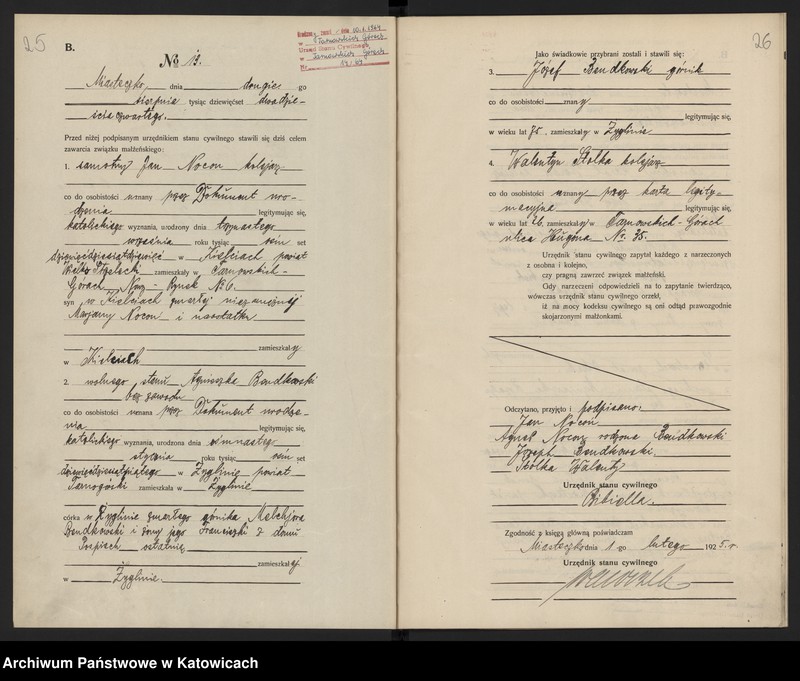 25
B.
No 13.
Miasteczko, dnia drugiego
sierpnia tysiąc dziewięćset dwadzie-
ścia czwartego.
Przed niżej podpisanym urzędnikiem stanu cywilnego stawili się dziś celem
zawarcia związku małżeńskiego:
1. samotny Jan Nocon kolejarz
co do osobistości uznany przez Dokument uro-
dzenia legitymując się,
katolickiego wyznania, urodzony dnia
września roku tysiąc osm set
dziewięćdziesiątdziewięć w Kielciach powiat
Wielko Strzelecki zamieszkały w Tarnowskich-
Górach Rynek № 6.
syn w Kielciach zmarłej niezamężnej
Marjanny Nocon
zamieszkały
w Kielciach
2. wolnego stanu Agnieszka Bendkowski
bez zawodu
co do osobistości uznana przez Dokument urodze-
nia legitymując się,
katolickiego wyznania, urodzona dnia osmnastego
stycznia roku tysiąc osm set
dziewięćdziesiątpiątego w Żyglinie powiat
Tarnogórski zamieszkała w Żyglinie
córka w Żyglinie zmarłego górnika Melchjora
Bendkowski i żony jego Franciszki z domu
Pospiech ostatnie
zamieszkałej
w Żyglinie.
26
Jako świadkowie przybrani zostali i stawili się:
3. Józef Bendkowski górnik
co do osobistości znany
legitymując się,
w wieku lat 75, zamieszkały w Żyglinie
4. Walentyn Stolka kolejarz
co do osobistości uznany przez karta legity-
macyjna legitymując się,
w wieku lat 26, zamieszkały w Tarnowskich-Górach
ulica Hugona № 35.
Urzędnik stanu cywilnego zapytał każdego z narzeczonych
z osobna i kolejno,
czy pragną zawrzeć związek małżeński.
Gdy narzeczeni odpowiedzieli na to zapytanie twierdząco,
wówczas urzędnik stanu cywilnego orzekł,
iż na mocy kodeksu cywilnego są oni odtąd prawozgodnie
skojarzonymi małżonkami.
Odczytano, przyjęto i podpisano:
Jan Nocon
Agnes Nocon rodzona Bendkowski
Joseph Bendkowski.
Stolka Walenty
Urzędnik stanu cywilnego
Bibiella.
Zgodność z księgą główną poświadczam
Miasteczko dnia 1 go lutego 1925 r
Urzędnik stanu cywilnego
Archiwum Państwowe w Katowicach